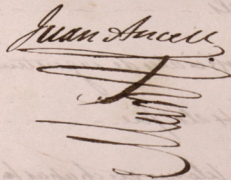 Juan Ancell